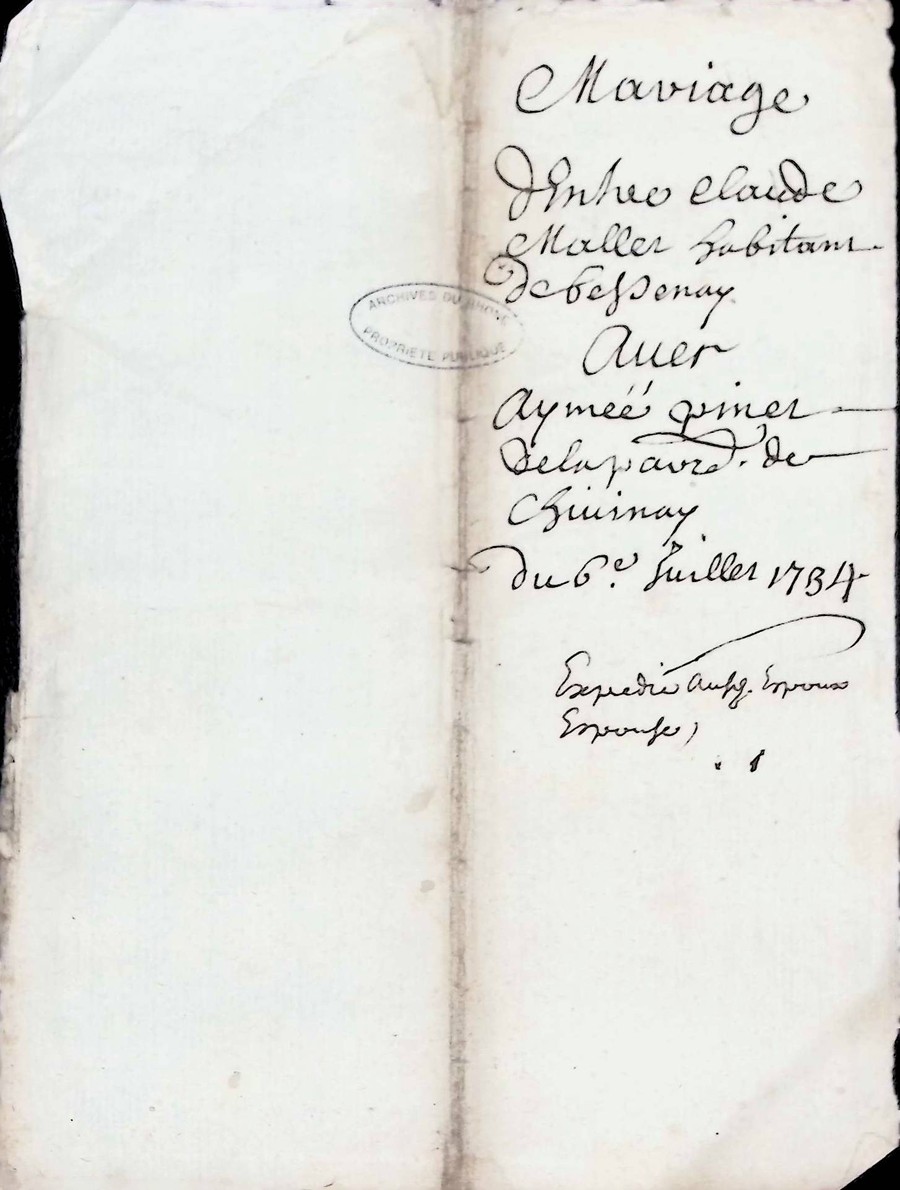 Mariage
d'Entre Claude
Mallet habitant
de bessenay
Auec
Aymeé pinet
de la parr. de
Chiuinay
du 6.e Juillet 1734
Expedié Ausd. Espoux
Espouse
ARCHIVES DU RHONE
PROPRIETE PUBLIQUE